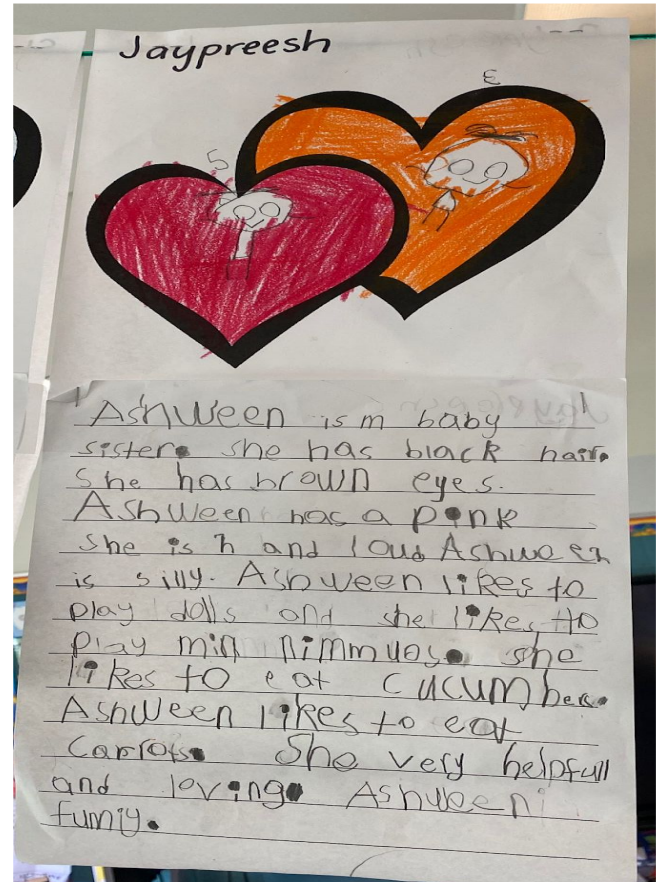 Jaypreesh
5
3
Ashween is m baby
sister. she has black hair.
She has brown eyes.
Ashween has a pink
She is h and loud Ashween
is silly. Ashween likes to
play dolls and she likes to
play min nimmuos. she
likes to eat cucumbers.
Ashween likes to eat
carrots. She very helpfull
and loving. Ashween
funny.